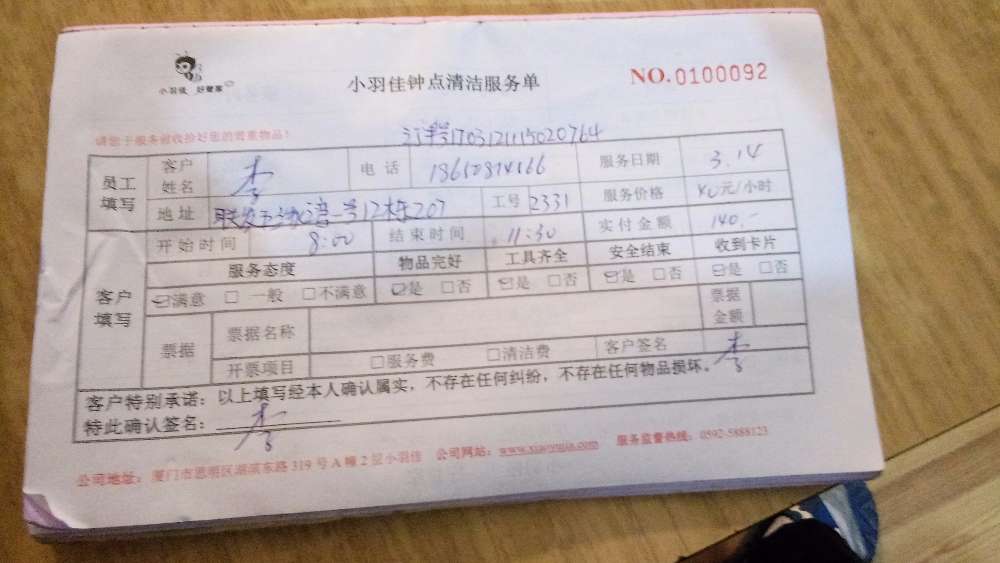 小羽佳 好管家
小羽佳钟点清洁服务单
NO.0100092
请您于服务前收拾好您的贵重物品!
订单号170312115020764
员工填写 客户姓名 李 电话 服务日期 3.14
地址 12栋207 工号 2331 服务价格 40元/小时
客户填写 开始时间 8:00 结束时间 11:30 实付金额 140.-
服务态度 物品完好 工具齐全 安全结束 收到卡片
☑满意 □一般 □不满意 ☑是 □否 ☑是 □否 ☑是 □否 ☑是 □否
票据 票据名称 票据金额
开票项目 □服务费 □清洁费 客户签名 李
客户特别承诺:以上填写经本人确认属实,不存在任何纠纷,不存在任何物品损坏。
特此确认签名: 李
公司地址:厦门市思明区湖滨东路319号A幢2层小羽佳 公司网站:www.xiaoyujia.com 服务监督热线:0592-5888123